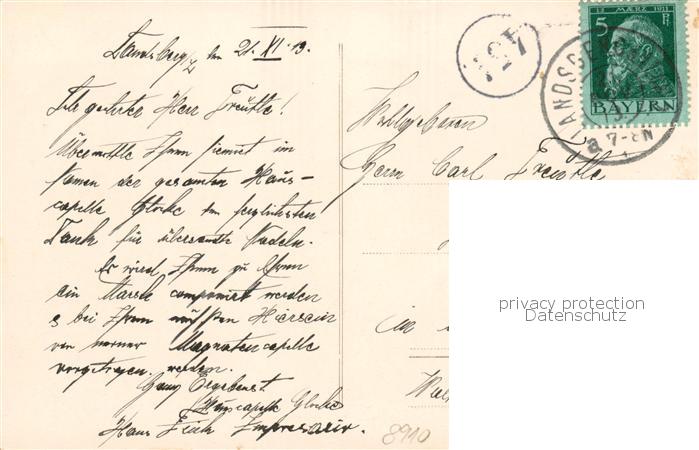 Landsberg a/L den 21. XI. 13.
Sehr geehrter Herr Treutle!
Übermittle Ihnen hiermit im
Namen der gesamten Haus-
capelle Glocke den herzlichsten
Dank für übersandte Nadeln.
Es wird Ihnen zu Ehren
ein Marsch componirt werden
& bei Ihrem Hiersein
von Magnatencapelle
vorgetragen werden.
Ganz Ergebenst
Hauscapelle Glocke
Hans Impresario.
8910
Wohlgeboren
Herrn Carl Treutle
in
12 MÆRZ 1911
5 Pf
BAYERN
LANDSBERG
7-8N
privacy protection
Datenschutz